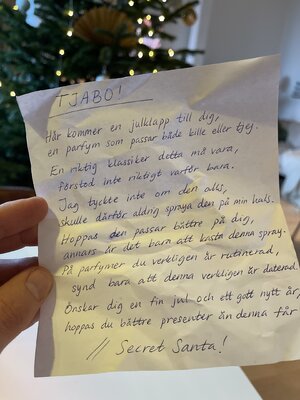 TJABO!
Här kommer en julklapp till dig,
en parfym som passar både kille eller tjej.
En riktig klassiker detta må vara,
Förstod inte riktigt varför bara.
Jag tyckte inte om den alls,
skulle därför aldrig spraya den på min hals.
Hoppas den passar bättre på dig,
annars är det bara att kasta denna sprej.
På parfymer du verkligen är rutinerad,
synd bara att denna verkligen är daterad.
Önskar dig en fin jul och ett gott nytt år,
hoppas du bättre presenter än denna får
// Secret Santa!